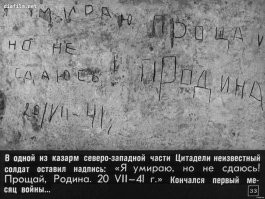 diafilm.net
УМИРАЮ ПРОЩАЙ
НО НЕ
СДАЮСЬ! РОДИНА
20/VII-41
В одной из казарм северо-западной части Цитадели неизвестный
солдат оставил надпись: «Я умираю, но не сдаюсь!
Прощай, Родина. 20 VII—41 г.» Кончался первый ме-
сяц войны...
33